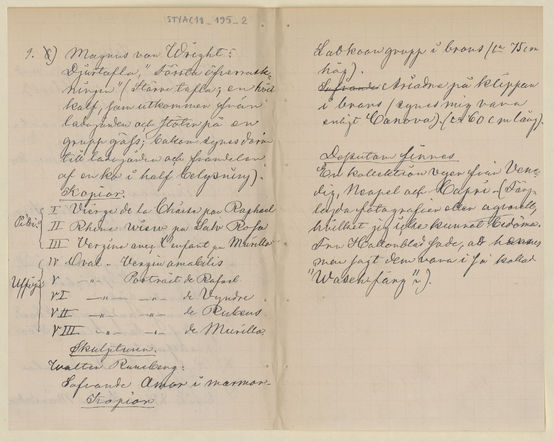 STYAC18_195_2
9. 8) Magnus von Wright:
Djurtafla, "Första öfverrask-
ningen" (Större tafla; en höst
kalf, som utkommen från
ladugården och stöter på en
grupp gäss;
till ladugården och framdelen
af en ko i half belysning).
Kopior.
Pitti
I Vierge de la Chaise par Raphael
II par Salv Rosa
III Vergine avec l'enfant par Murillo
Uffizi
IV Oval - Vergin amabilis
V " Porträtt de Rafael
VI -"- -"- de
VII -"- -"- de Rubens
VIII -"- -"- de Murillo
Skulpturer.
Walter Runeberg:
Sofvande Amor i marmor
Kopior
Laokoon grupp i brons (ca 75 cm
hög).
Sofvande Ariadne på klippan
i brons (synes mig vara
enligt Canova) (ca 60 cm lång).
Dessutom finnes
En kollektion vyer från Vene-
dig, Neapel och Capri (Färg-
lagda fotografier eller akvareller,
hvilket jag icke kunnat bedöma.
Fru Hallonblad sade, att
man sagt dem vara i så kallad
"Wasch-färg").